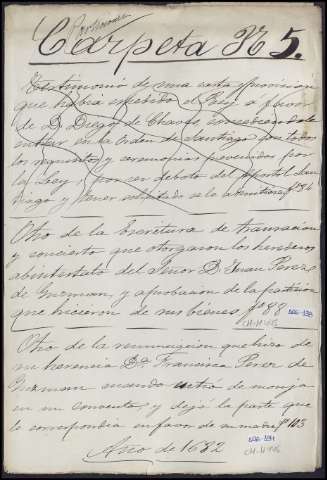 Carpeta N 5.
Testimonio de una carta y provision
que habia expedido el Rey a favor
de D. Diego de Chaves concediendole
entrar en la Orden de Santiago con todos
los requisitos y ceremonias prevenidos por
la Ley, por ser deboto del Apostol San-
tiago y haver solicitado se le admitiera
Otro de la Escritura de transacion
y concierto que otorgaron los herederos
abintestato del Señor D. Juan Perez
de Guzman, y aprobacion de la particion
que hicieron de sus bienes fº 88
Otro de la renunciacion que hizo de
su herencia Dª. Francisca Perez de
Guzman cuando entró de monja
en un convento, y dejó la parte que
le correspondia en favor de su madre fº 103
Año de 1632